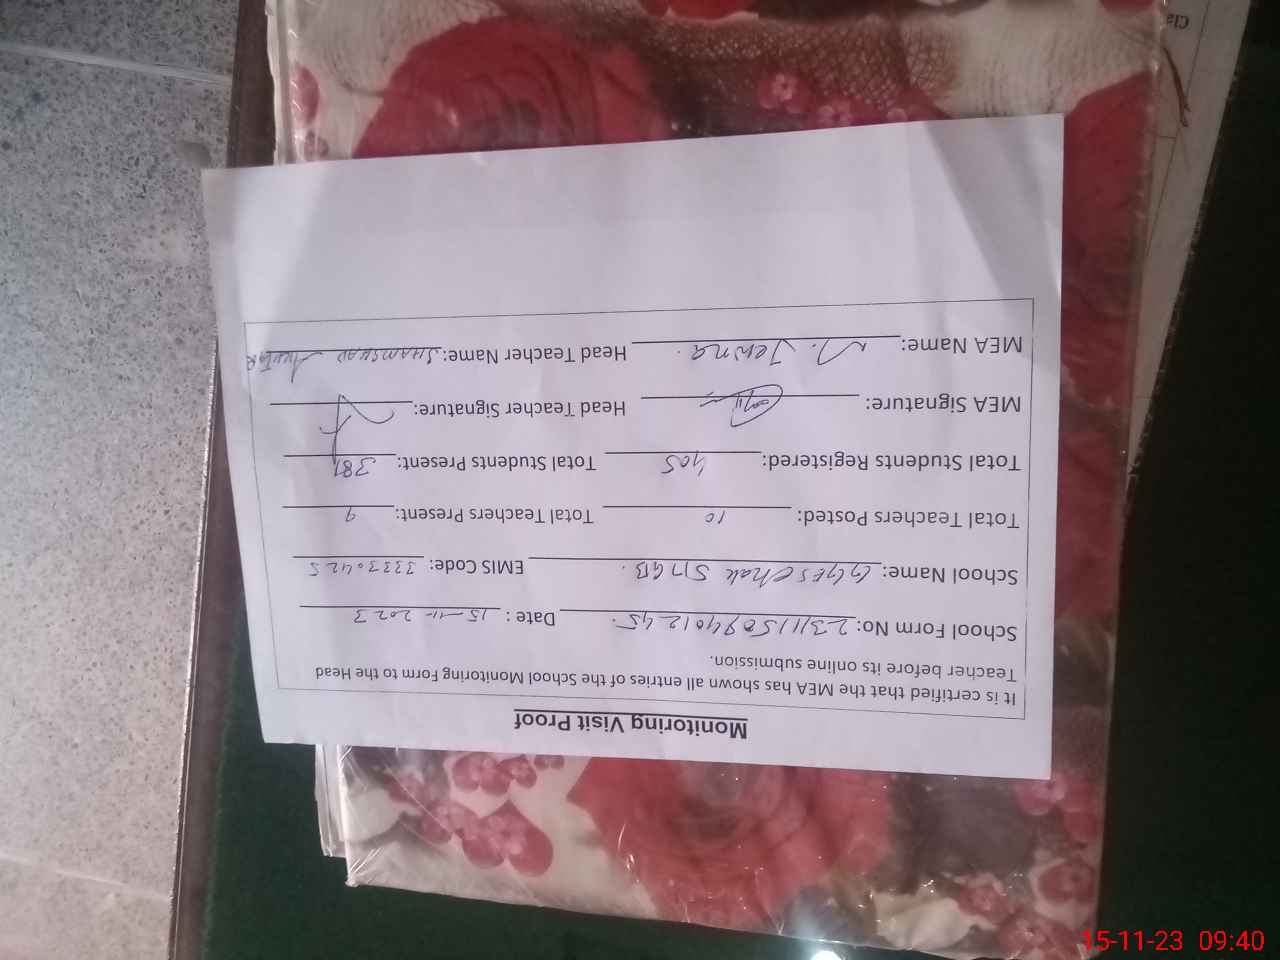 Monitoring Visit Proof
It is certified that the MEA has shown all entries of the School Monitoring Form to the Head
Teacher before its online submission.
School Form No: 23111509401245. Date : 15-11-2023
School Name: GGES Chak 517GB. EMIS Code: 33330425
Total Teachers Posted: 10 Total Teachers Present: 9
Total Students Registered: 405 Total Students Present: 381
MEA Signature: Head Teacher Signature:
MEA Name: Head Teacher Name: SHAMSHAD AKHTAR
Cla
15-11-23 09:40